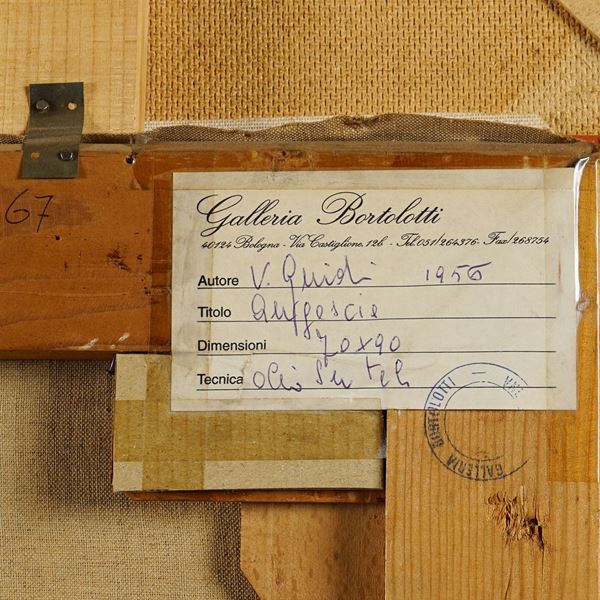 67
Galleria Bortolotti
40124 Bologna - Via Castiglione, 12b - Tel. 051/264376 - Fax/268754
Autore V. Guidi 1956
Titolo Angoscie
Dimensioni 70x90
Tecnica olio su tela
GALLERIA BORTOLOTTI